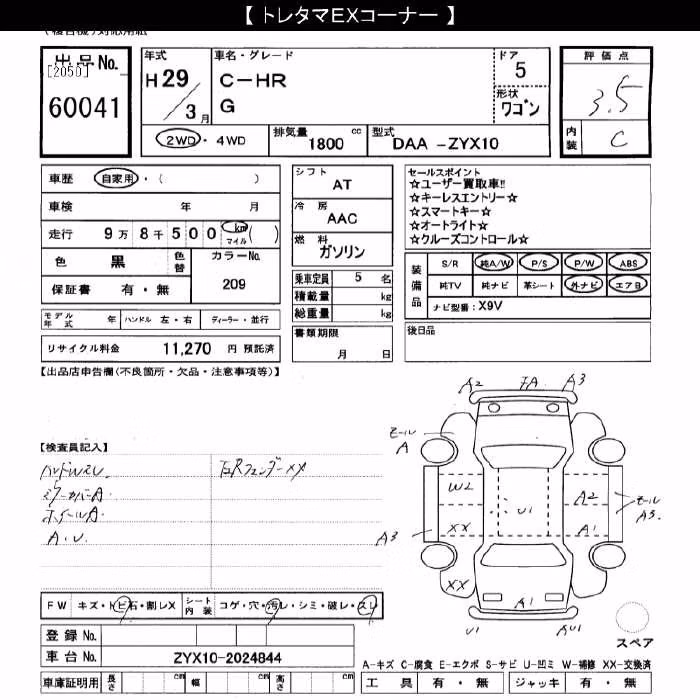 【 トレタマEXコーナー 】
(複合機)対応用紙
出品No.
[2050]
60041
年式
H 29
/ 3 月
車名・グレード
C-HR
G
ドア
5
形状
ワゴン
評価点
3.5
内装 C
2WD・4WD
排気量 1800 cc
型式 DAA -ZYX10
車歴 自家用・( )
車検 年 月
走行 9万 8千 5 0 0 km マイル ( )
色 黒 色替 カラーNo.
209
保証書 有・無
モデル年式 年 ハンドル 左・右 ディーラー・並行
リサイクル料金 11,270 円 預託済
シフト
AT
冷房
AAC
燃料
ガソリン
乗車定員 5 名
積載量 kg
総重量 kg
書類期限
月 日
セールスポイント
☆ユーザー買取車!!
☆キーレスエントリー☆
☆スマートキー☆
☆オートライト☆
☆クルーズコントロール☆
装備品
S/R 純A/W P/S P/W ABS
純TV 純ナビ 革シート 外ナビ エアB
ナビ型番:X9V
後日品
【出品店申告欄(不良箇所・欠品・注意事項等)】
【検査員記入】
ハンドルスレ
ミラーカバーA.
ホイールA.
A.U.
右Rフェンダーxx
A2 FA A3
モール
A
W2
A2
U1
モール
A3
A3
XX
A1
XX
A1
U1 AU1
スペア
FW キズ・トビ石・割レX
シート内装 コゲ・穴・汚レ・シミ・破レ・スレ
登録 No.
車台 No. ZYX10-2024844
車庫証明用 長さ cm 幅 cm 高さ cm
A-キズ C-腐食 E-エクボ S-サビ U-凹ミ W-補修 XX-交換済
工具 有・無 ジャッキ 有・無